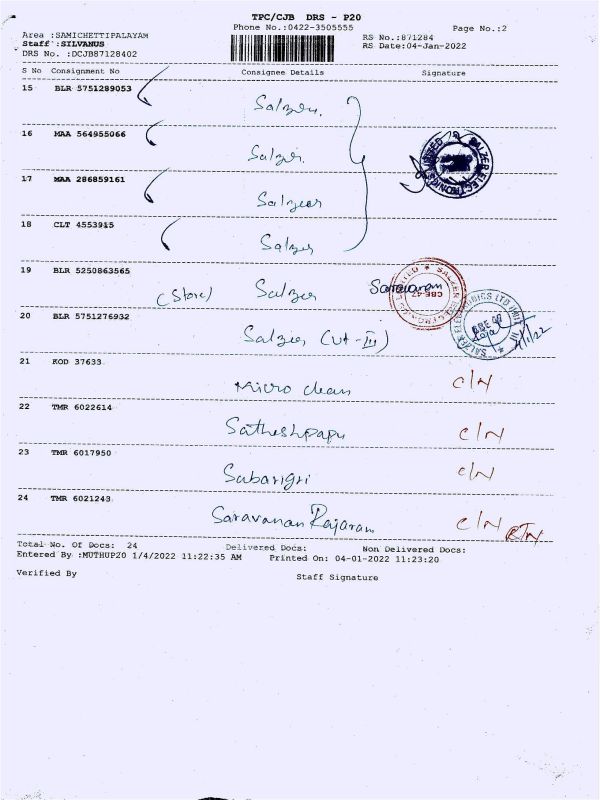 TPC/CJB DRS - P20
Phone No.:0422-3505555 Page No.:2
Area :SAMICHETTIPALAYAM RS No.:871284
Staff :SILVANUS RS Date:04-Jan-2022
DRS No. :DCJB87128402
S No Consignment No Consignee Details Signature
15 BLR 5751289053
Salzer.
16 MAA 564955066
Salzer.
17 MAA 286859161
Salzer
18 CLT 4553915
Salzer
19 BLR 5250863565
(Store) Salzer Saravanan
20 BLR 5751276932
Salzer (Ut-III)
21 KOD 37633
Micro clean C/N
22 TMR 6022614
Satheshpapu C/N
23 TMR 6017950
Sabarigri C/N
24 TMR 6021243
Saravanan Rajaram C/N RTN
Total No. Of Docs: 24 Delivered Docs: Non Delivered Docs:
Entered By :MUTHUP20 1/4/2022 11:22:35 AM Printed On: 04-01-2022 11:23:20
Verified By Staff Signature